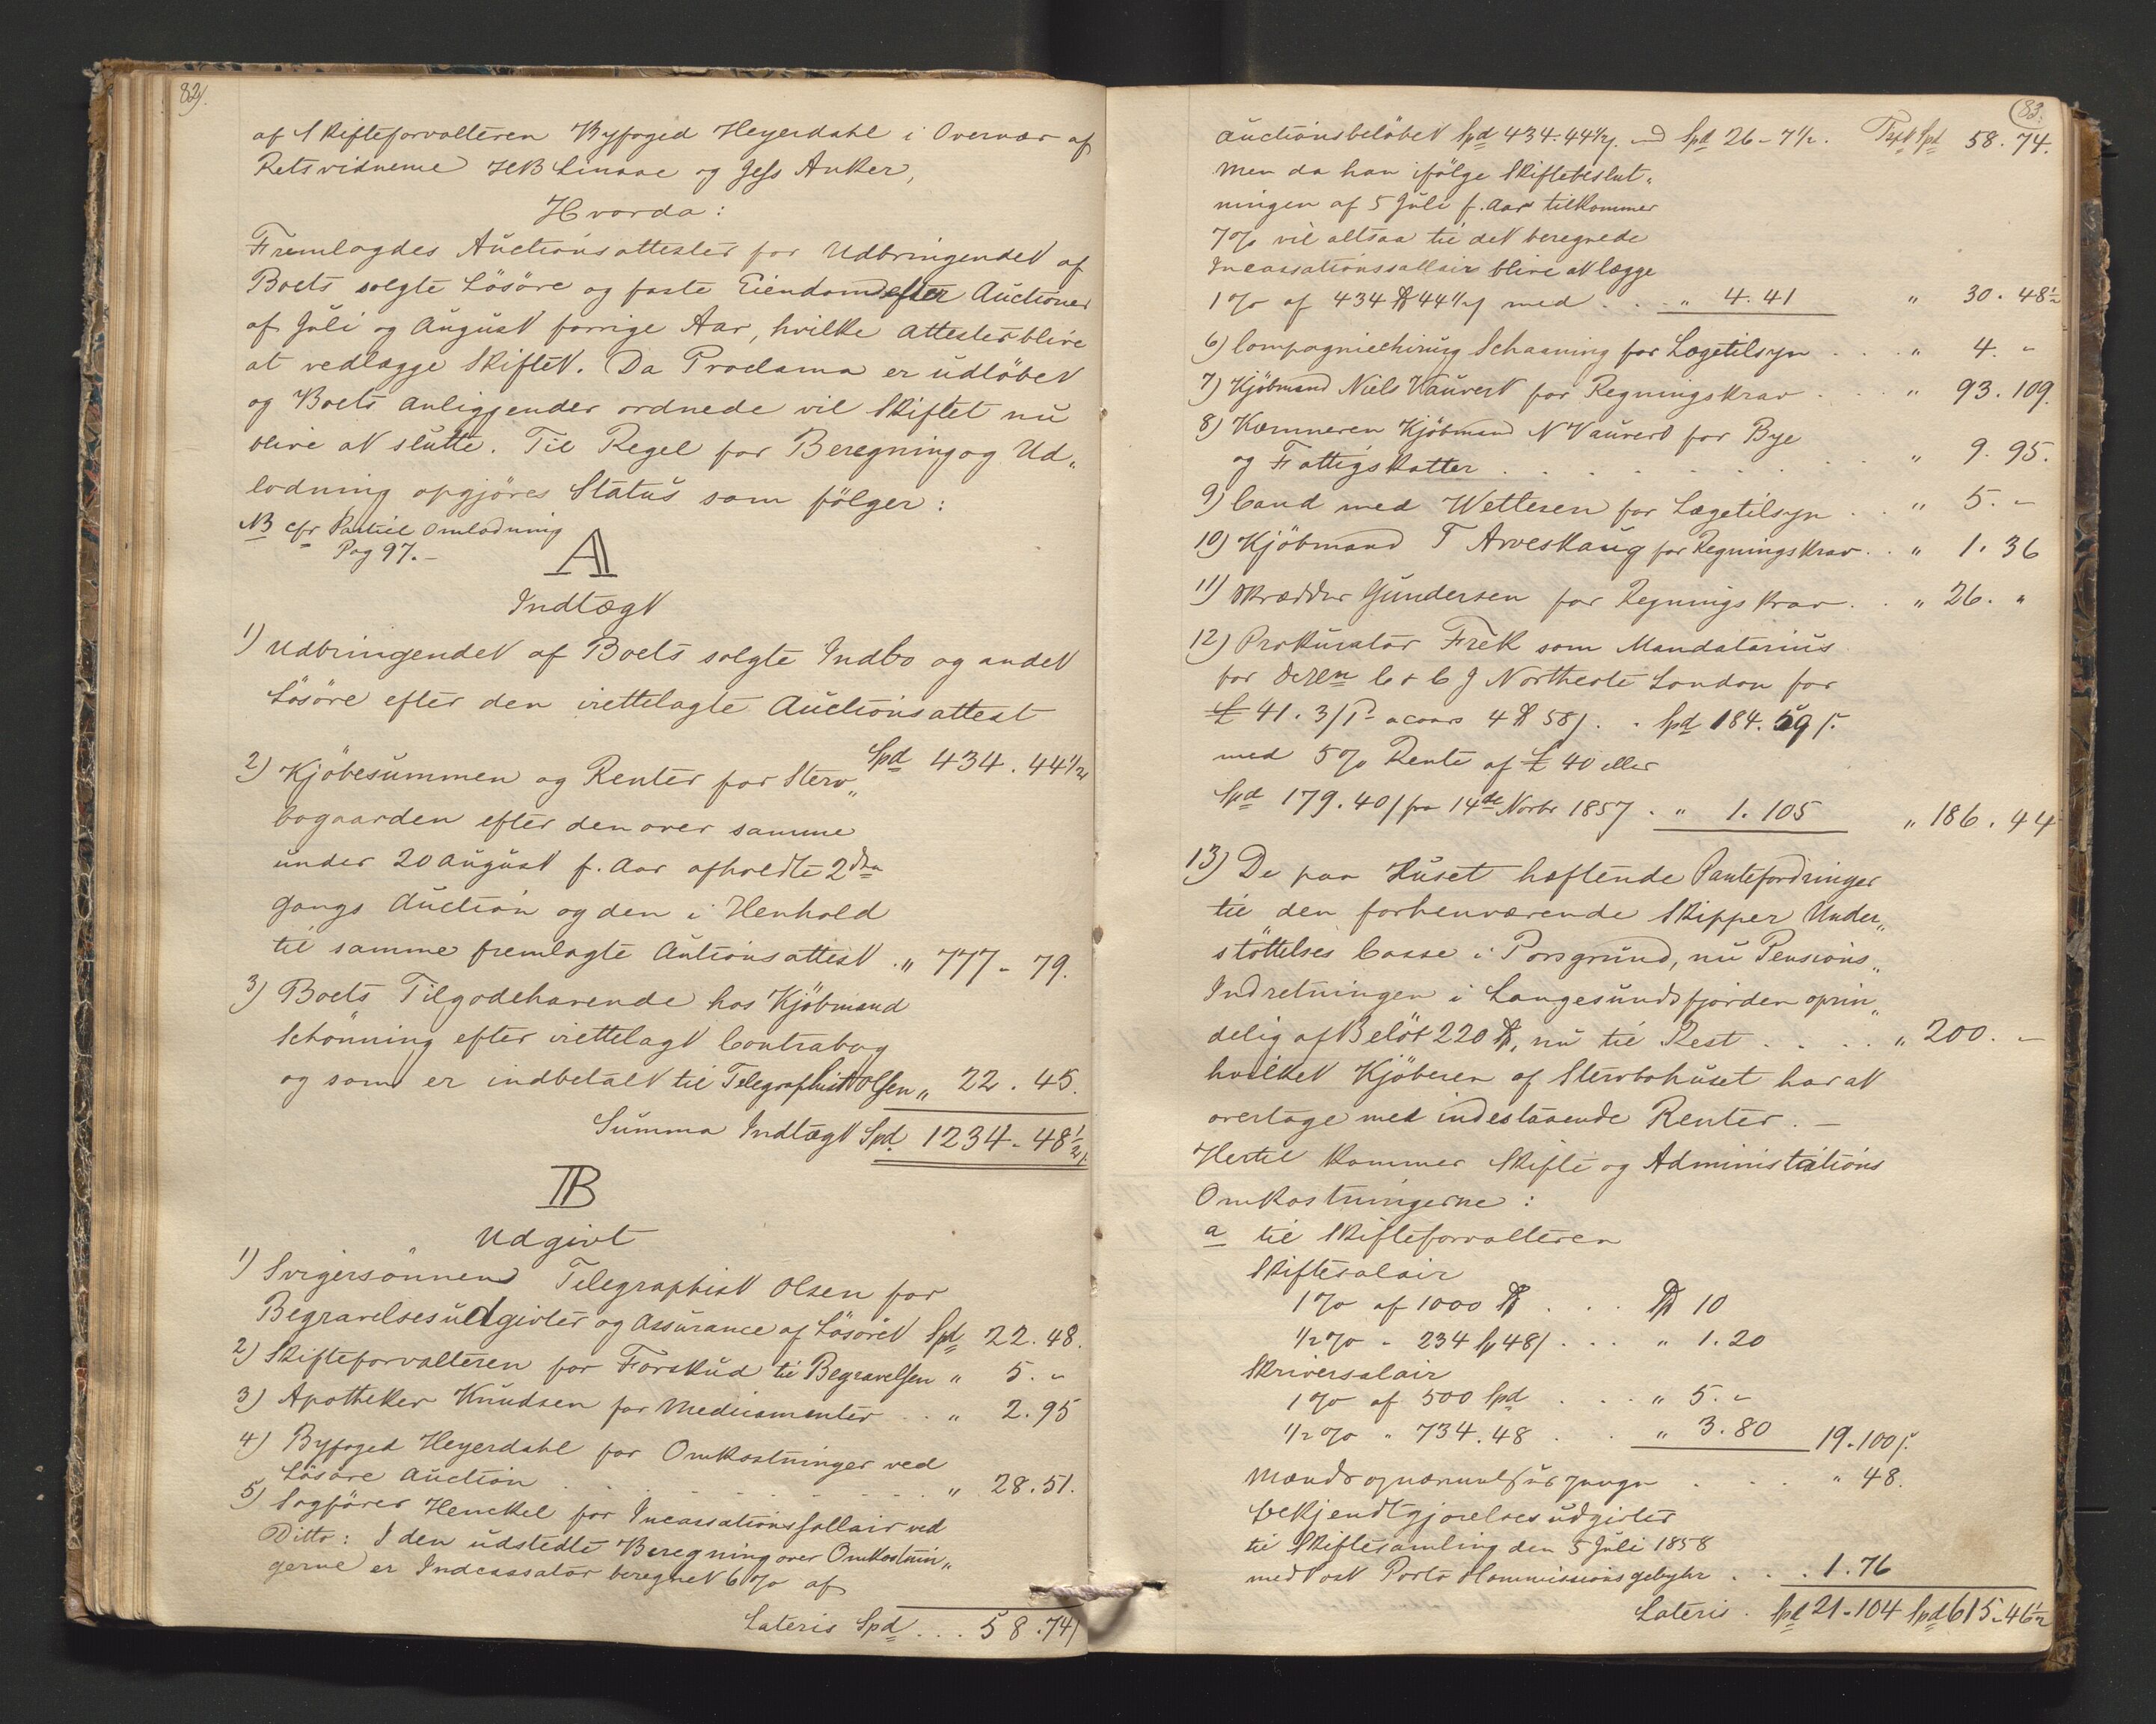 82.
af Skifteforvalteren Byfoged Heyerdahl i Overvær af
Retsvidnerne HB Linaae og Jess Anker,
Hvorda:
Fremlagdes Auctionsattester for Udbringendet af
Boets solgte Lösöre og faste Eiendom efter Auctioner
af Juli og August forrige Aar, hvilke attester blive
at vedlægge Skiftet. Da Proclama er udlöbet
og Boets anliggender ordnede vil Skiftet nu
blive at slutte. Til Regel for Beregning og Ud„
lodning opgjöres Status som fölger:
NB cfr Partiel Omlodning
Pag 97.-
A
Indtægt
1) Udbringendet af Boets solgte Indbo og andet
Lösöre efter den irettelagte Auctionsattest
Spd 434.44½
2) Kjöbesummen og Renter for Sterv„
bogaarden efter den over samme
under 20 August f. Aar afholdte 2den
Gangs Auction og den i Henhold
til samme fremlagte Autionsattest . „ 777-79.
3) Boets Tilgodehavende hos Kjöbmand
Schönning efter irettelagt Contrabog
og som er indbetalt til Telegraphist Olsen „ 22.45.
Summa Indtægt Spd. 1234-48½
B
Udgivt
1) Svigersönnen Telegraphist Olsen for
Begravelsesudgivter og Assurance af Lösöret Spd 22.48.
2) Skifteforvalteren for Forskud til Begravelsen „ 5.-
3) Apotheker Knudsen for Medicamenter . . „ 2.95
4) Byfoged Heyerdahl for Omkostninger ved
Lösöre Auction . . . . „ 28.51.
5) Sagförer Henckel for Incassationssallair ved
Ditto: I den udstedte Beregning over Omkostnin„
gerne er Indcassator beregnet 6% af
Lateris Spd . . . 58.74
83.
Auctionsbelöbet Spd 434.44½ med Spd 26-7½. Trpt Spd 58.74.
Men da han ifölge Skiftebeslut„
ningen af 5 Juli f. Aar tilkommer
7% vil altsaa til det beregnede
Incassationssallair blive at lægge
1% af 434 44½ med . . . „ 4.41 „ 30.48½
6) Compagniechirurg Schaanning for Lægetilsyn . . „ 4.-
7) Kjöbmand Niels Vauvert for Regningskrav . . „ 93.109.
8) Kæmneren Kjöbmand N Vauvert for Bye
og Fattigskatter . . . . „ 9.95.
9) Cand med Wettesen for Lægetilsyn . . „ 5.-
10) Kjöbmand T Arveskaug for Regningskrav . . „ 1.36
11) Skrædder Gundersen for Regningskrav . . „ 26. „
12) Prokurator Frek som Mandatarius
for Dhrrn C & C J Northeote London for
£ 41.3/ acours 4 58/. . Spd 184.59/.
med 5% Rente af £ 40 eller
Spd 179.40/ fra 14de Novbr 1857 . „ 1.105 „ 186.44
13) De paa Huset heftende Pantefordringer
til den forhenværende Skipper Under„
stöttelses Casse i Porsgrund, nu Pensions„
Indretningen i Langesundsfjorden oprin„
delig af Belöb 220, nu til Rest . . . . „ 200.-
hvilket Kjöberen af Stervbohuset har at
overtage med indestaaende Renter. -
Hertil kommer Skifte og Administrations
Omkostningerne:
a til Skifteforvalteren
Skiftesalair
1% af 1000 . . . 10
½% - 234 48/ . . . „ 1.20
Skriversalair
1% af 500 Spd . . . „ 5.-
½% „ 734.48 . . „ 3.80 19.100/.
. . . „ 48.
bekjendtgjörelses udgivter
til Skiftesamling den 5 Juli 1858
med Porto Kommissions gebyhr . . . 1.76
Lateris . Spd 21-104 Spd 615-46½